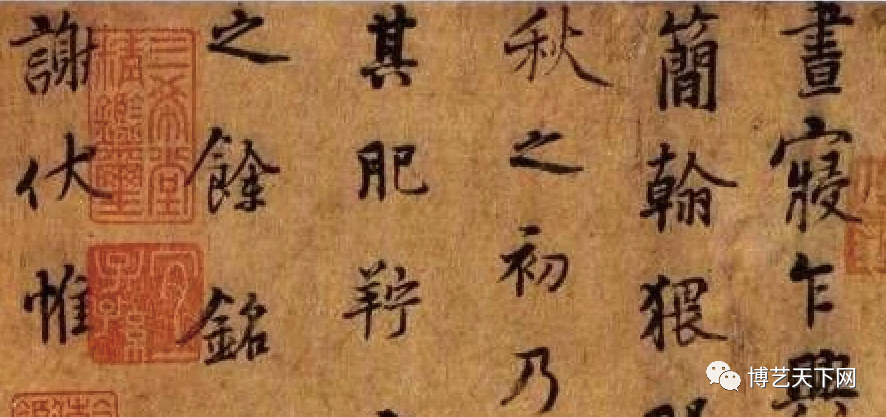 晝寢乍興
簡翰猥
秋之初乃
其肥羜
之餘銘
謝伏惟
三希堂精鑑璽
宜子孫
博艺天下网